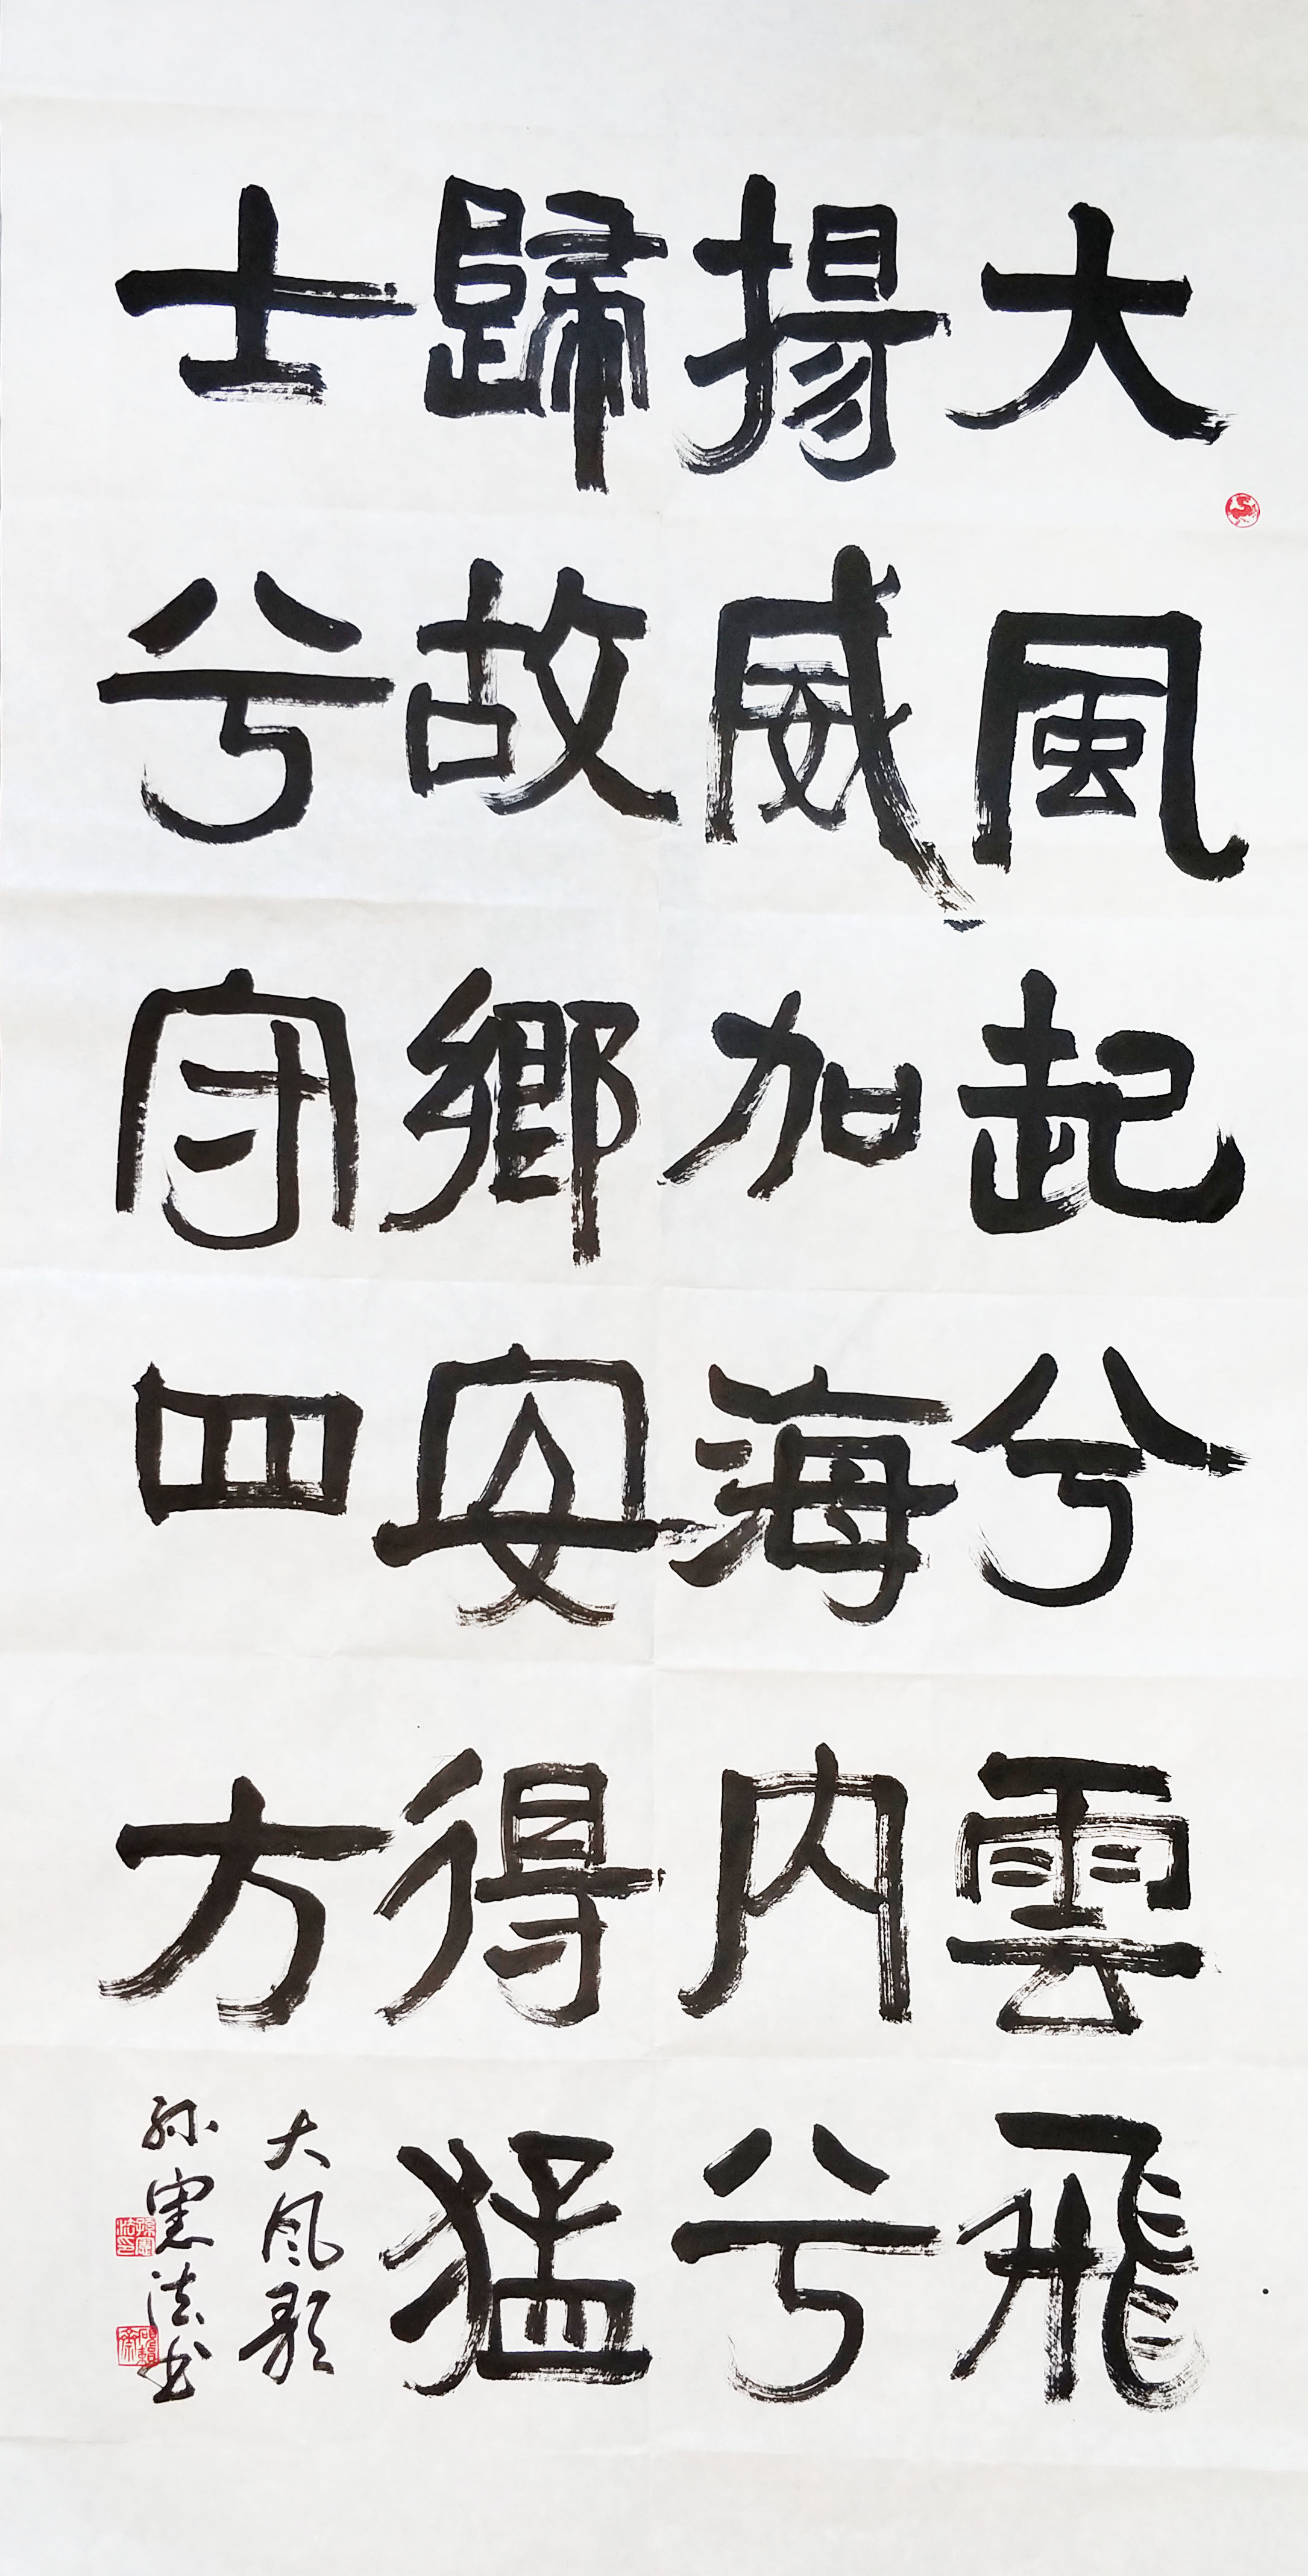 大風起兮雲飛
揚威加海内兮
歸故鄉安得猛
士兮守四方
大风歌
孙憲法书